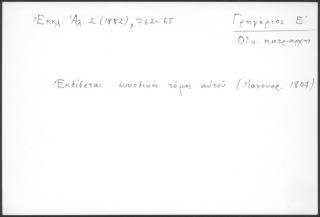 Ἐκκλ. Ἀλ. 2 (1882), 762-65
Γρηγόριος Ε΄
Οἰκ. πατριάρχης
Ἐκδίδεται συνοδικὸς τόμος αὐτοῦ (Ἰανουαρ. 1807)